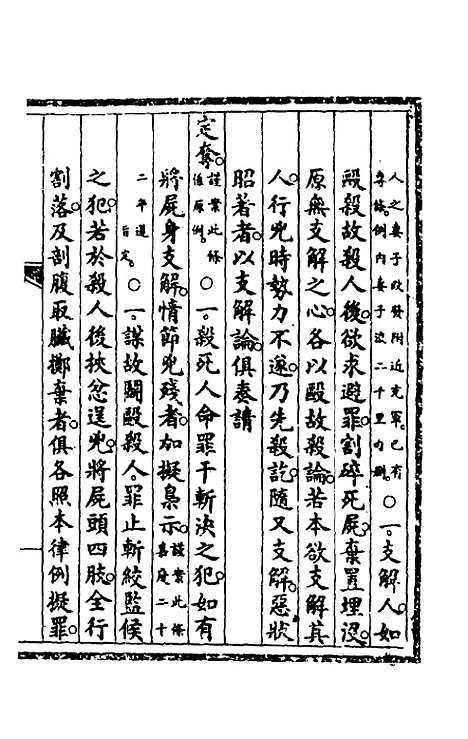 人之妻子改發附近充軍。已有
專條。例內妻子流二十里句刪。〇一。支解人。如
毆殺故殺人後。欲求避罪。割碎死屍。棄置埋沒。
原無支解之心。各以毆故殺論。若本欲支解其
人。行兇時勢力不遂。乃先殺訖。隨又支解。惡狀
昭著者。以支解論。俱奏請
定奪。謹案此條
係原例。〇一。殺死人命罪干斬決之犯。如有
將屍身支解。情節兇殘者。加擬梟示。謹案此條
嘉慶二十
二年遵
旨定。〇一。謀故鬭毆殺人。罪止斬絞監候
之犯。若於殺人後挾忿逞兇。將屍頭四肢。全行
割落。及剖腹取臟擲棄者。俱各照本律例擬罪。